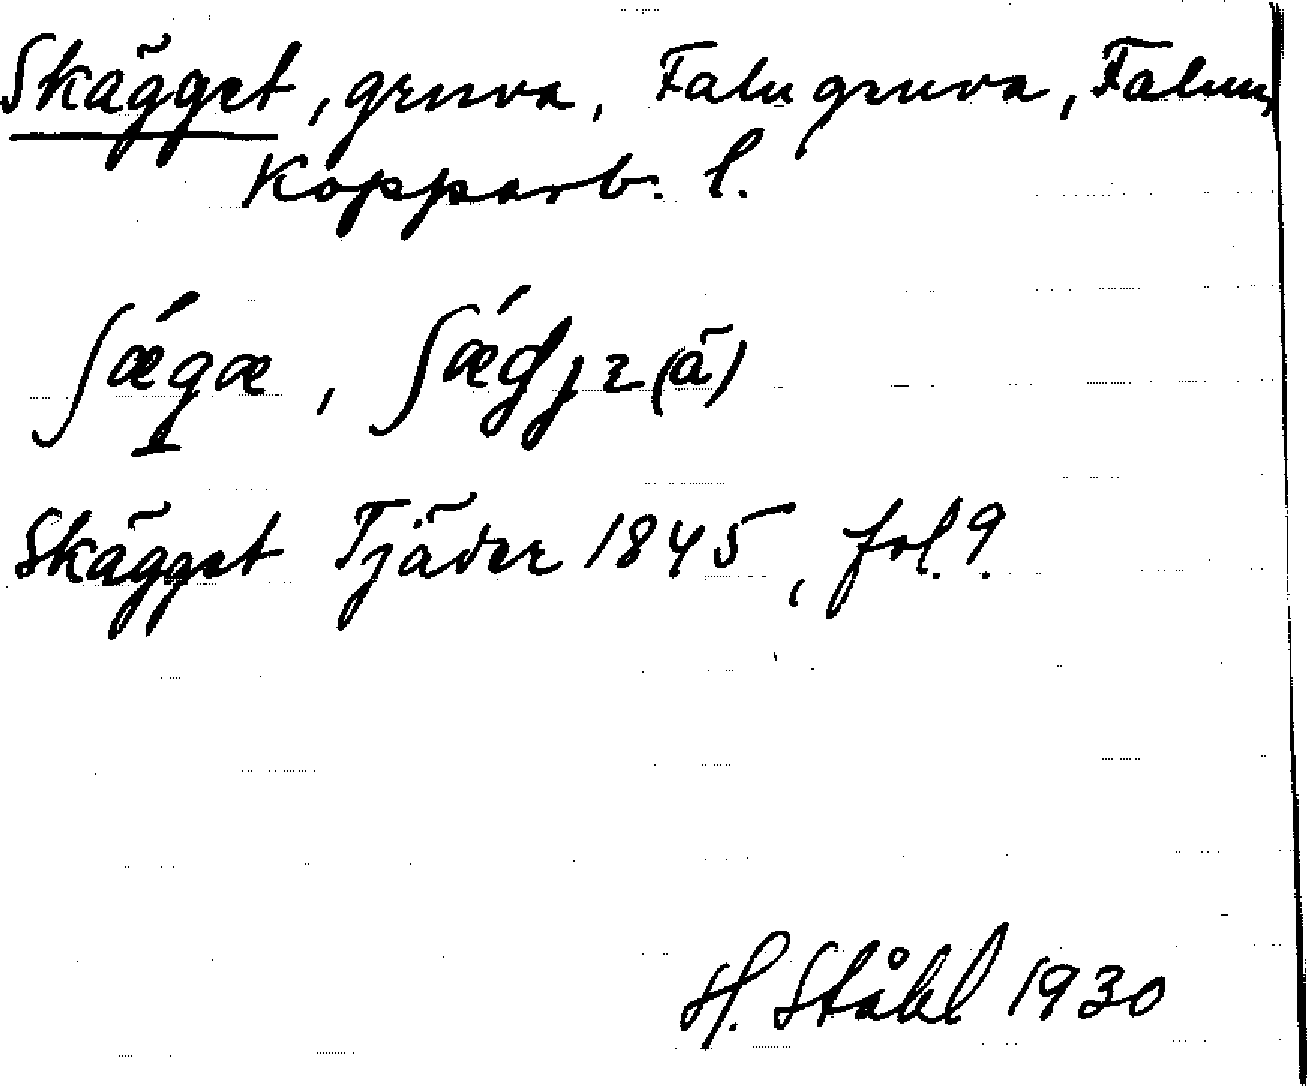 Skägget, gruva, Falu gruva, Falun,
Kopparb. l.
Skägget Tjäder 1845, fol. 9.
H. Ståhl 1930